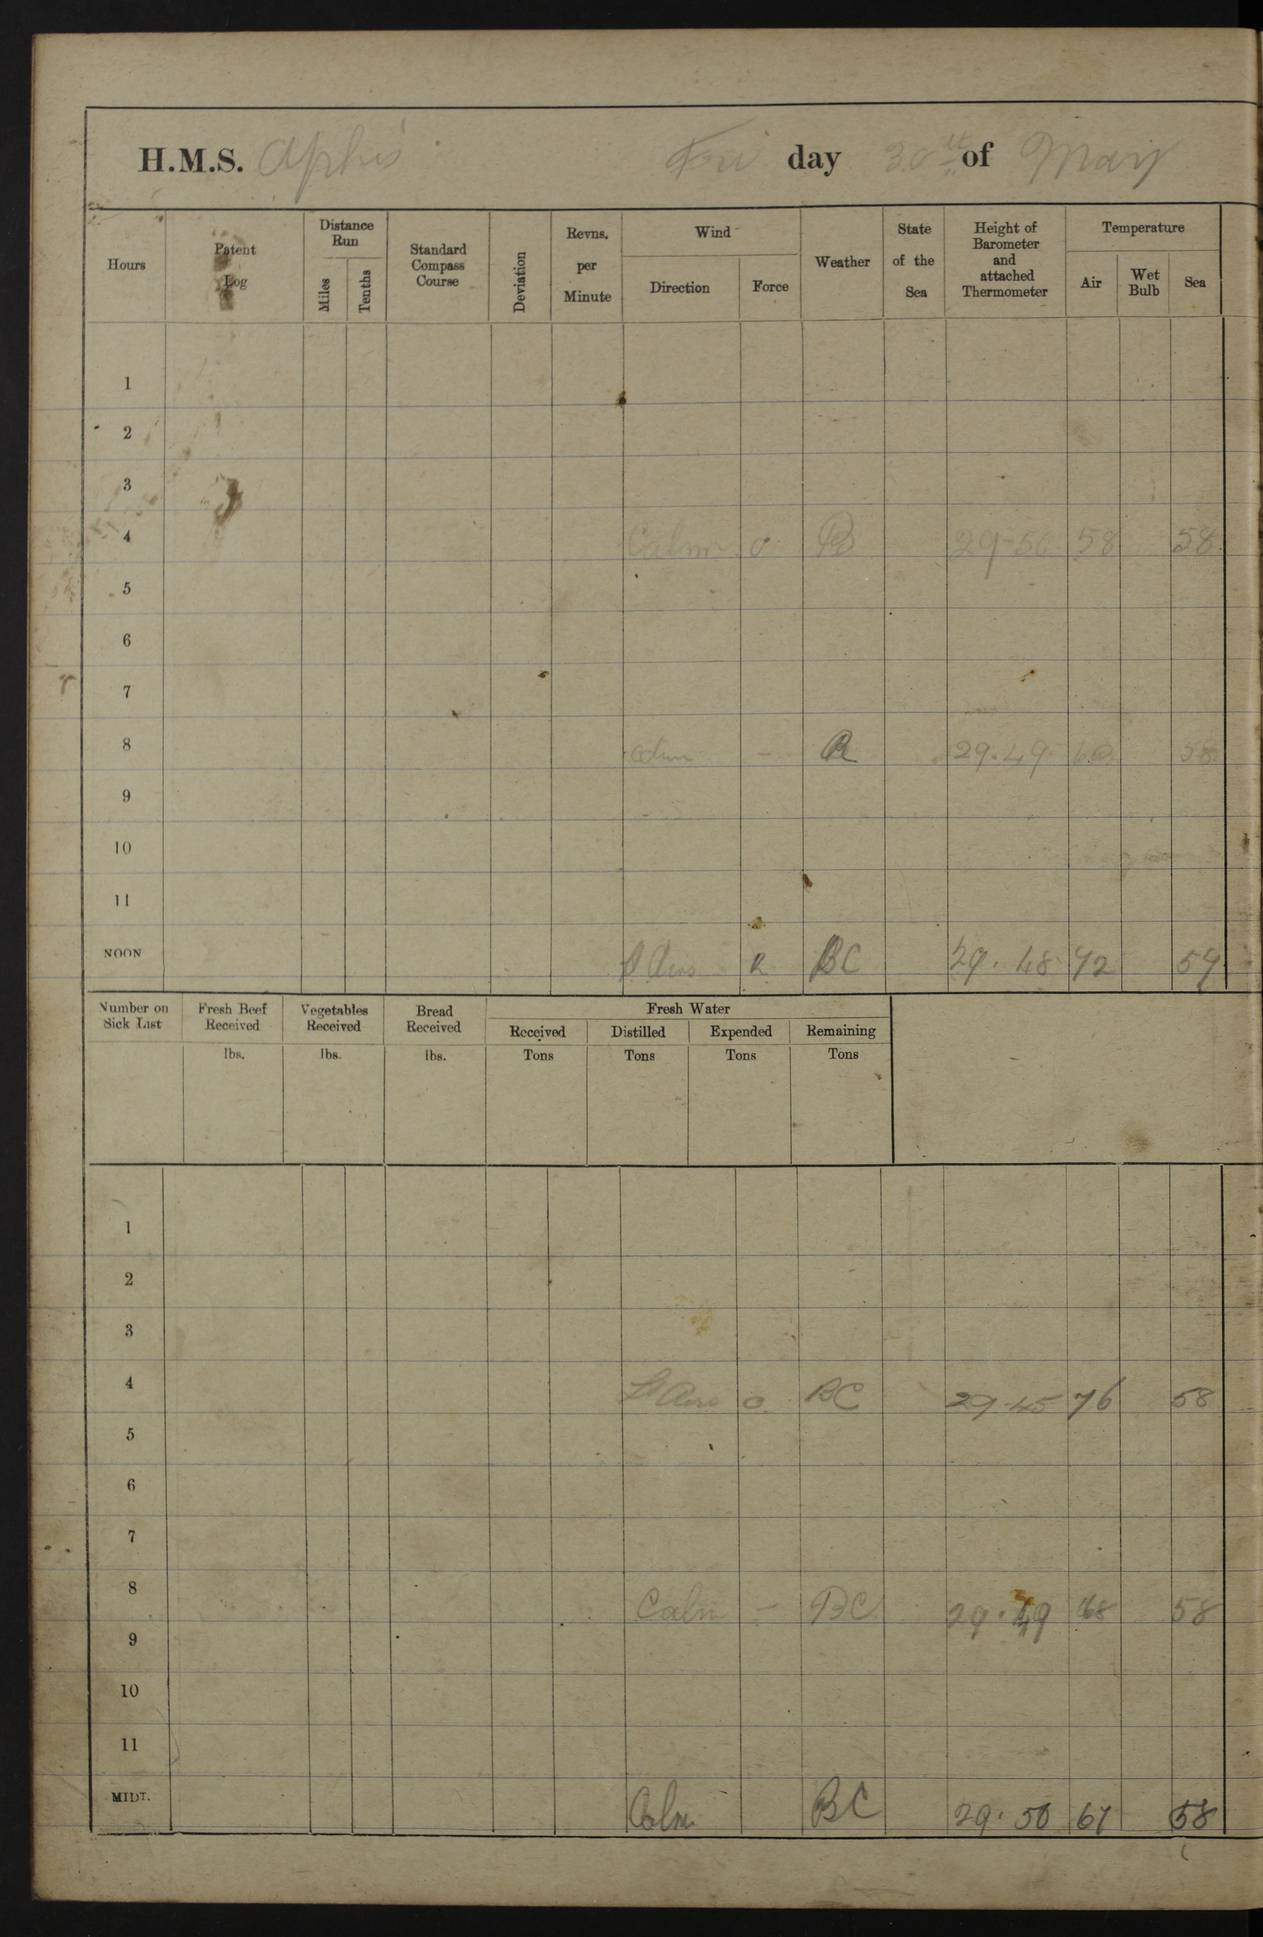 H.M.S. Aphis Fri day 30th of May
Hours Patent Log Distance Run Miles Tenths Standard Compass Course Deviation Revns. per Minute Wind Direction Force Weather State of the Sea Height of Barometer and attached Thermometer Temperature Air Wet Bulb Sea
1
2
3
4 Calm 0 B 29-50 58 58
5
6
7
8 Calm - 29.49 58
9
10
11
NOON BC 29.48 72 59
Number on Sick List Fresh Beef Received lbs. Vegetables Received lbs. Bread Received lbs. Fresh Water Received Tons Distilled Tons Expended Tons Remaining Tons
1
2
3
4 0 BC 29.45 76 58
5
6
7
8 Calm - BC 29.49 68 58
9
10
11
MIDT. Calm BC 29.50 61 58